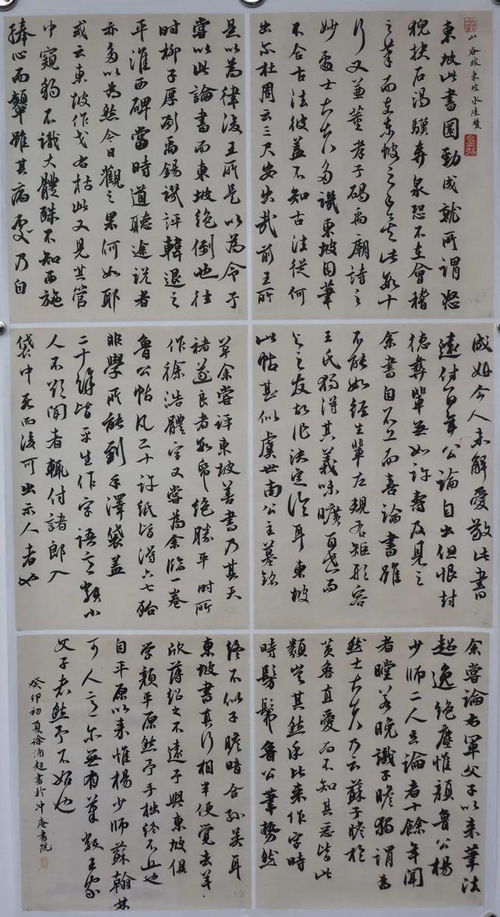 山谷跋東坡水陸贊
東坡此書圓勁成就所謂怒
猊抉石渴驥奔泉恐不在會稽
之筆而在東坡之手矣此數十
行又兼董孝子碣禹廟詩之
妙處士大夫多譏東坡用筆
不合古法彼蓋不知古法從何
出尒杜周云三尺安出哉前王所
是以為律後王所是以為令予
嘗以此論書而東坡絕倒也往
時柳子厚劉禹錫譏評韓退之
平淮西碑當時道聽途說者
亦多以為然今日觀之果何如耶
或云東坡作戈右枯此又見其管
中窺豹不識大體殊不知西施
捧心而顰雖其病處乃自
成妍今人未解愛此書
遠付百年公論自出但恨封
德彝輩無如許壽及見之
余書自不工而喜論書雖
不能如經生輩左規右矩形容
王氏獨得其義味曠百世而
與之友故作決定論耳東坡
此帖甚似虞世南公主墓銘
草余嘗評東坡善書乃其天
褚遂良者數紙絕勝平時所
作徐浩體字又嘗為余臨一卷
魯公帖凡二十許紙皆得六七殆
非學所能到手澤袋蓋
二十餘皆平生作字語意類小
人不欲聞者輒付諸郎入
袋中死而後可出示人者也
余嘗論右軍父子以來筆法
超逸絕塵惟顏魯公楊
少師二人立論者十餘年聞
者瞠若晚識子瞻獨謂為
然士大夫乃云蘇子瞻於
黃魯直愛而不知其惡皆此
類豈其然乎比來作字時
時髣髴魯公筆勢然
終不似子瞻暗合孫吳耳
東坡書真行相半便覺去羊
欣薄紹之不遠予與東坡俱
學顏平原然予手拙終不近也
自平原以來惟楊少師蘇翰林
可人意爾無有筆類王家
父子者然予不好也
癸卯初夏徐超書於冲庵書院